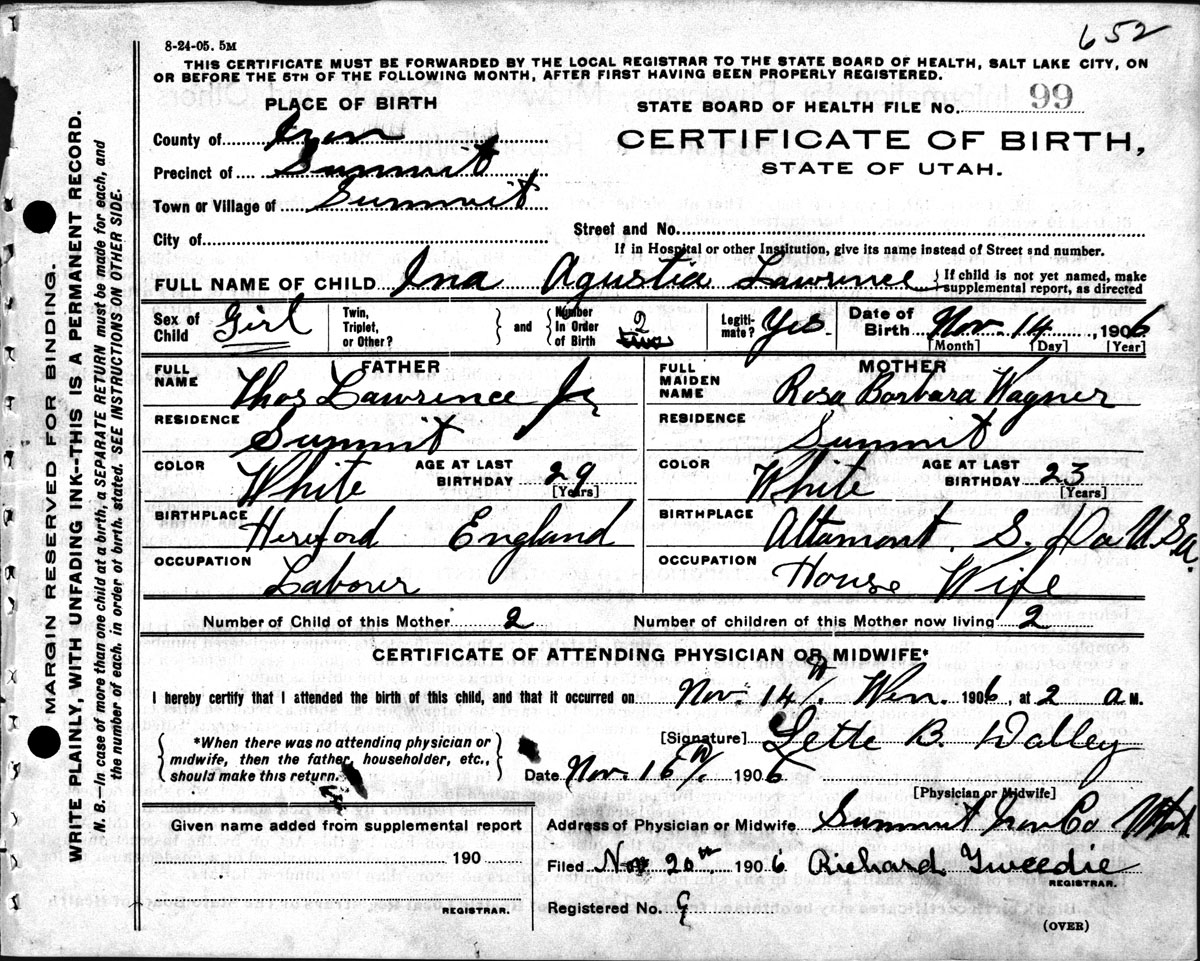 652
8-24-05. 5M
THIS CERTIFICATE MUST BE FORWARDED BY THE LOCAL REGISTRAR TO THE STATE BOARD OF HEALTH, SALT LAKE CITY, ON
OR BEFORE THE 5TH OF THE FOLLOWING MONTH, AFTER FIRST HAVING BEEN PROPERLY REGISTERED.
PLACE OF BIRTH
STATE BOARD OF HEALTH FILE No. 99
County of Iron
CERTIFICATE OF BIRTH,
Precinct of Summit
STATE OF UTAH.
Town or Village of Summit
City of
Street and No.
If in Hospital or other Institution, give its name instead of Street and number.
FULL NAME OF CHILD Ina Agustia Lawrence } If child is not yet named, make supplemental report, as directed
Sex of Child Girl Twin, Triplet, or Other? } and { Number in Order of Birth 2 Legiti-mate? Yes Date of Birth Nov. 14, 1906
[Month] [Day] [Year]
FATHER
FULL NAME Thos Lawrence Jr
RESIDENCE Summit
COLOR White AGE AT LAST BIRTHDAY 29 [Years]
BIRTHPLACE Hereford England
OCCUPATION Labour
MOTHER
FULL MAIDEN NAME Rosa Barbara Wagner
RESIDENCE Summit
COLOR White AGE AT LAST BIRTHDAY 23 [Years]
BIRTHPLACE Altamont. S. Da U.S.A.
OCCUPATION House Wife
Number of Child of this Mother 2 Number of children of this Mother now living 2
CERTIFICATE OF ATTENDING PHYSICIAN OR MIDWIFE*
I hereby certify that I attended the birth of this child, and that it occurred on Nov. 14th. Wen. 1906, at 2 a M.
{ *When there was no attending physician or
midwife, then the father, householder, etc.,
should make this return. }
[Signature] Lette B. Dalley
Date Nov. 16th. 1906
[Physician or Midwife]
Given name added from supplemental report
190
REGISTRAR.
Address of Physician or Midwife Summit Iron Co Utah
Filed Nov 20th 1906 Richard Tweedie
REGISTRAR.
Registered No. 9
(OVER)
MARGIN RESERVED FOR BINDING.
WRITE PLAINLY, WITH UNFADING INK--THIS IS A PERMANENT RECORD.
N. B.--In case of more than one child at a birth, a SEPARATE RETURN must be made for each, and
the number of each, in order of birth, stated. SEE INSTRUCTIONS ON OTHER SIDE.